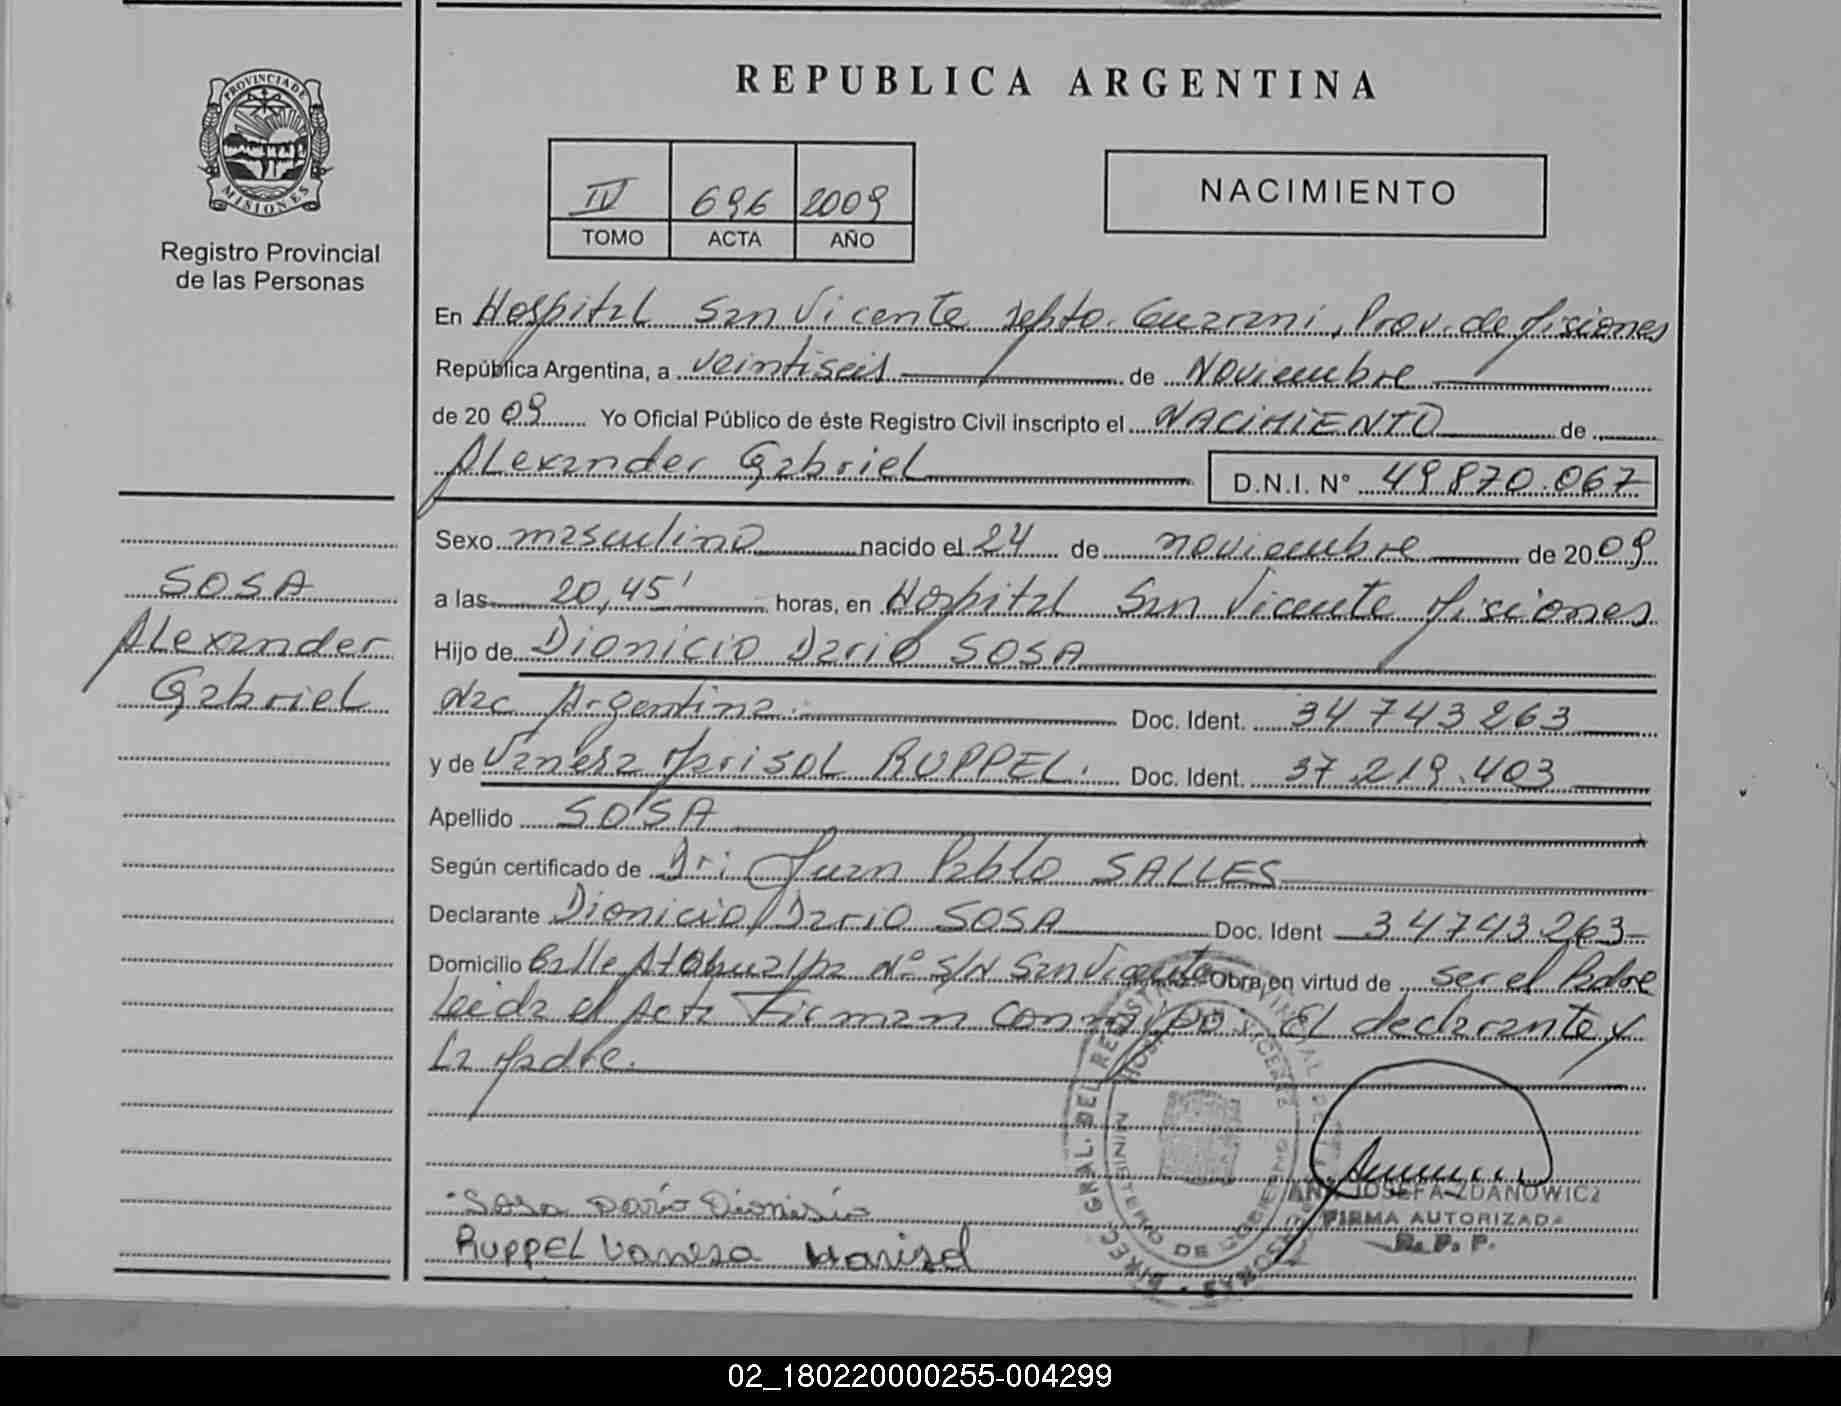 PROVINCIA DE
MISIONES
Registro Provincial
de las Personas
SOSA
Alexander
Gabriel
REPUBLICA ARGENTINA
IV 696 2009
TOMO ACTA AÑO
NACIMIENTO
En Hospital San Vicente Depto. Guarani, Prov. de Misiones
República Argentina, a veintiseis de Noviembre
de 2009 Yo Oficial Público de éste Registro Civil inscripto el NACIMIENTO de
Alexander Gabriel D.N.I. Nº 49.870.067
Sexo masculino nacido el 24 de noviembre de 2009
a las 20,45' horas, en Hospital San Vicente Misiones
Hijo de Dionicio Dario SOSA
Nac Argentina. Doc. Ident. 34743263
y de Vanesa Marisol RUPPEL. Doc. Ident. 37.219.403
Apellido SOSA
Según certificado de Dr: Juan Pablo SALLES
Declarante Dionicio Dario SOSA Doc. Ident 34743263
Domicilio Calle Atahualpa Nº S/N San Vicente Obra en virtud de ser el Padre
Leida el Acta Firman conmigo: El declarante y
La Madre.
Sosa Darío Dionisio
Ruppel Vanesa Marisol
DIREC. GRAL. DEL REGISTRO PROVINCIAL DE LAS PERSONAS
MINISTERIO DE GOBIERNO
HOSPITAL SAN VICENTE
ANA JOSEFA ZDANOWICZ
FIRMA AUTORIZADA
R. P. P.
02_180220000255-004299